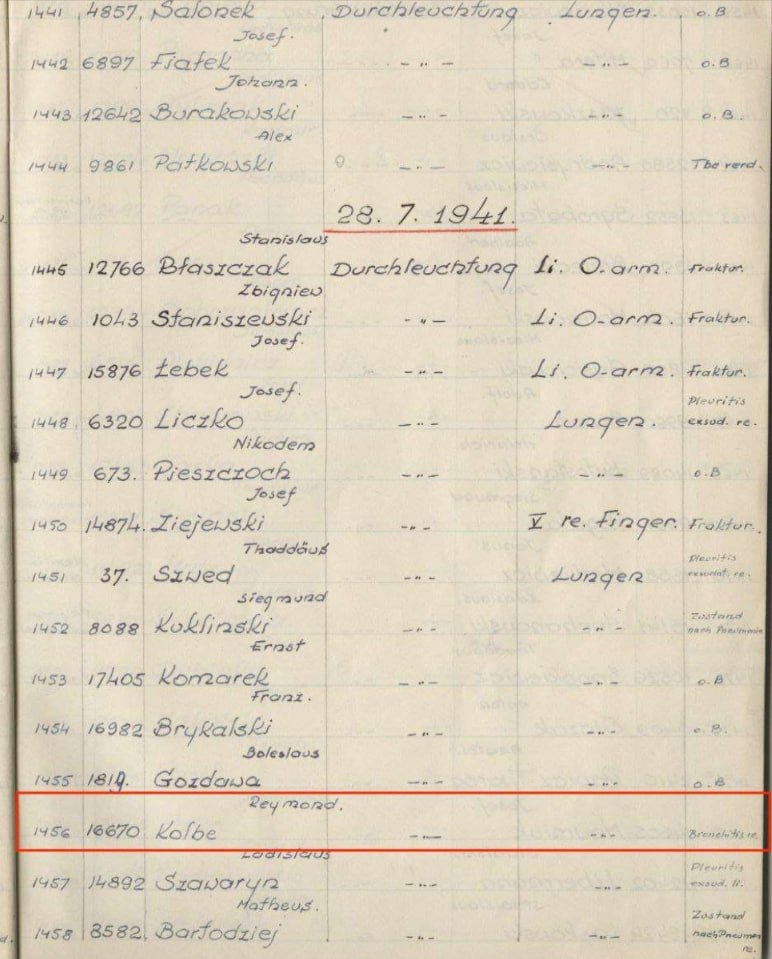 1441 4857. Salonek Durchleuchtung Lungen. o.B
Josef.
1442 6897 Fiałek - " - - " - o.B
Johann.
1443 12642 Burakowski - " - - " - o.B.
Alex
1444 9861 Patkowski - " - - " - Tbc verd.
28. 7. 1941.
Stanislaus
1445 12766 Błaszczak Durchleuchtung Li. O-arm. Fraktur.
Zbigniew
1446 1043 Staniszewski - " - Li. O-arm. Fraktur.
Josef.
1447 15876 Łebek - " - Li. O-arm. Fraktur.
Josef. Pleuritis
1448. 6320 Liczko - " - Lungen. exsud. re.
Nikodem
1449 673. Pieszczoch - " - - " - o.B
Josef
1450 14874. Ziejewski - " - V re. Finger. Fraktur.
Thaddäuß Pleuritis
1451 37. Szwed - " - Lungen exsudat. re.
Siegmund Zustand
1452 8088 Kuklinski - " - - " - nach Pneumonie
Ernst
1453 17405 Komarek - " - - " - o.B
Franz.
1454 16982 Brykalski - " - - " - o.B.
Boleslaus
1455 1819. Gozdawa - " - - " - o.B
Reymond.
1456 16670 Kolbe - " - - " - Bronchitis re.
Ladislaus Pleuritis
1457 14892 Szawaryn - " - - " - exsud. li.
Matheus. Zustand
1458 8582. Bartodziej - " - - " - nach Pneumon
re.